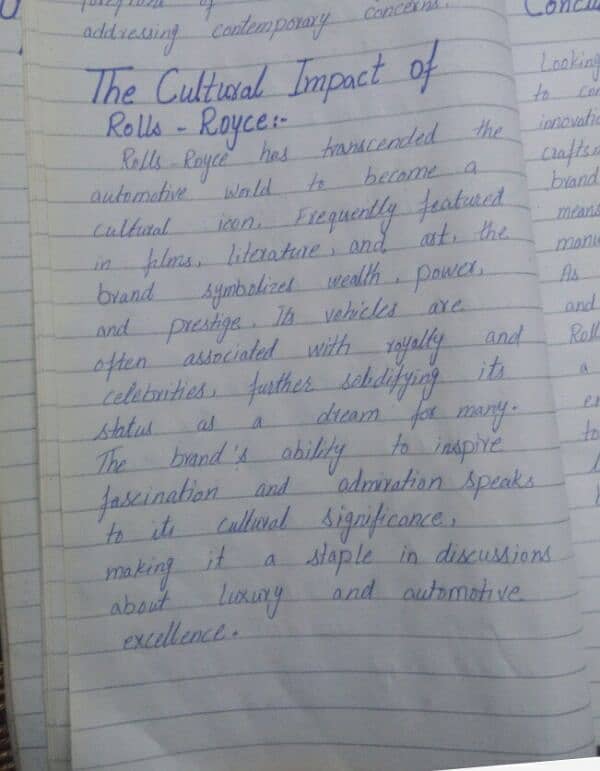 addressing contemporary concerns.
The Cultural Impact of
Rolls - Royce:-
Rolls-Royce has transcended the
automotive world to become a
cultural icon. Frequently featured
in films, literature, and art, the
brand symbolizes wealth, power,
and prestige. Its vehicles are
often associated with royalty and
celebrities, further solidifying its
status as a dream for many.
The brand's ability to inspire
fascination and admiration speaks
to its cultural significance,
making it a staple in discussions
about luxury and automotive
excellence.
Looking
to
brand
means
As
and
Roll
a
to